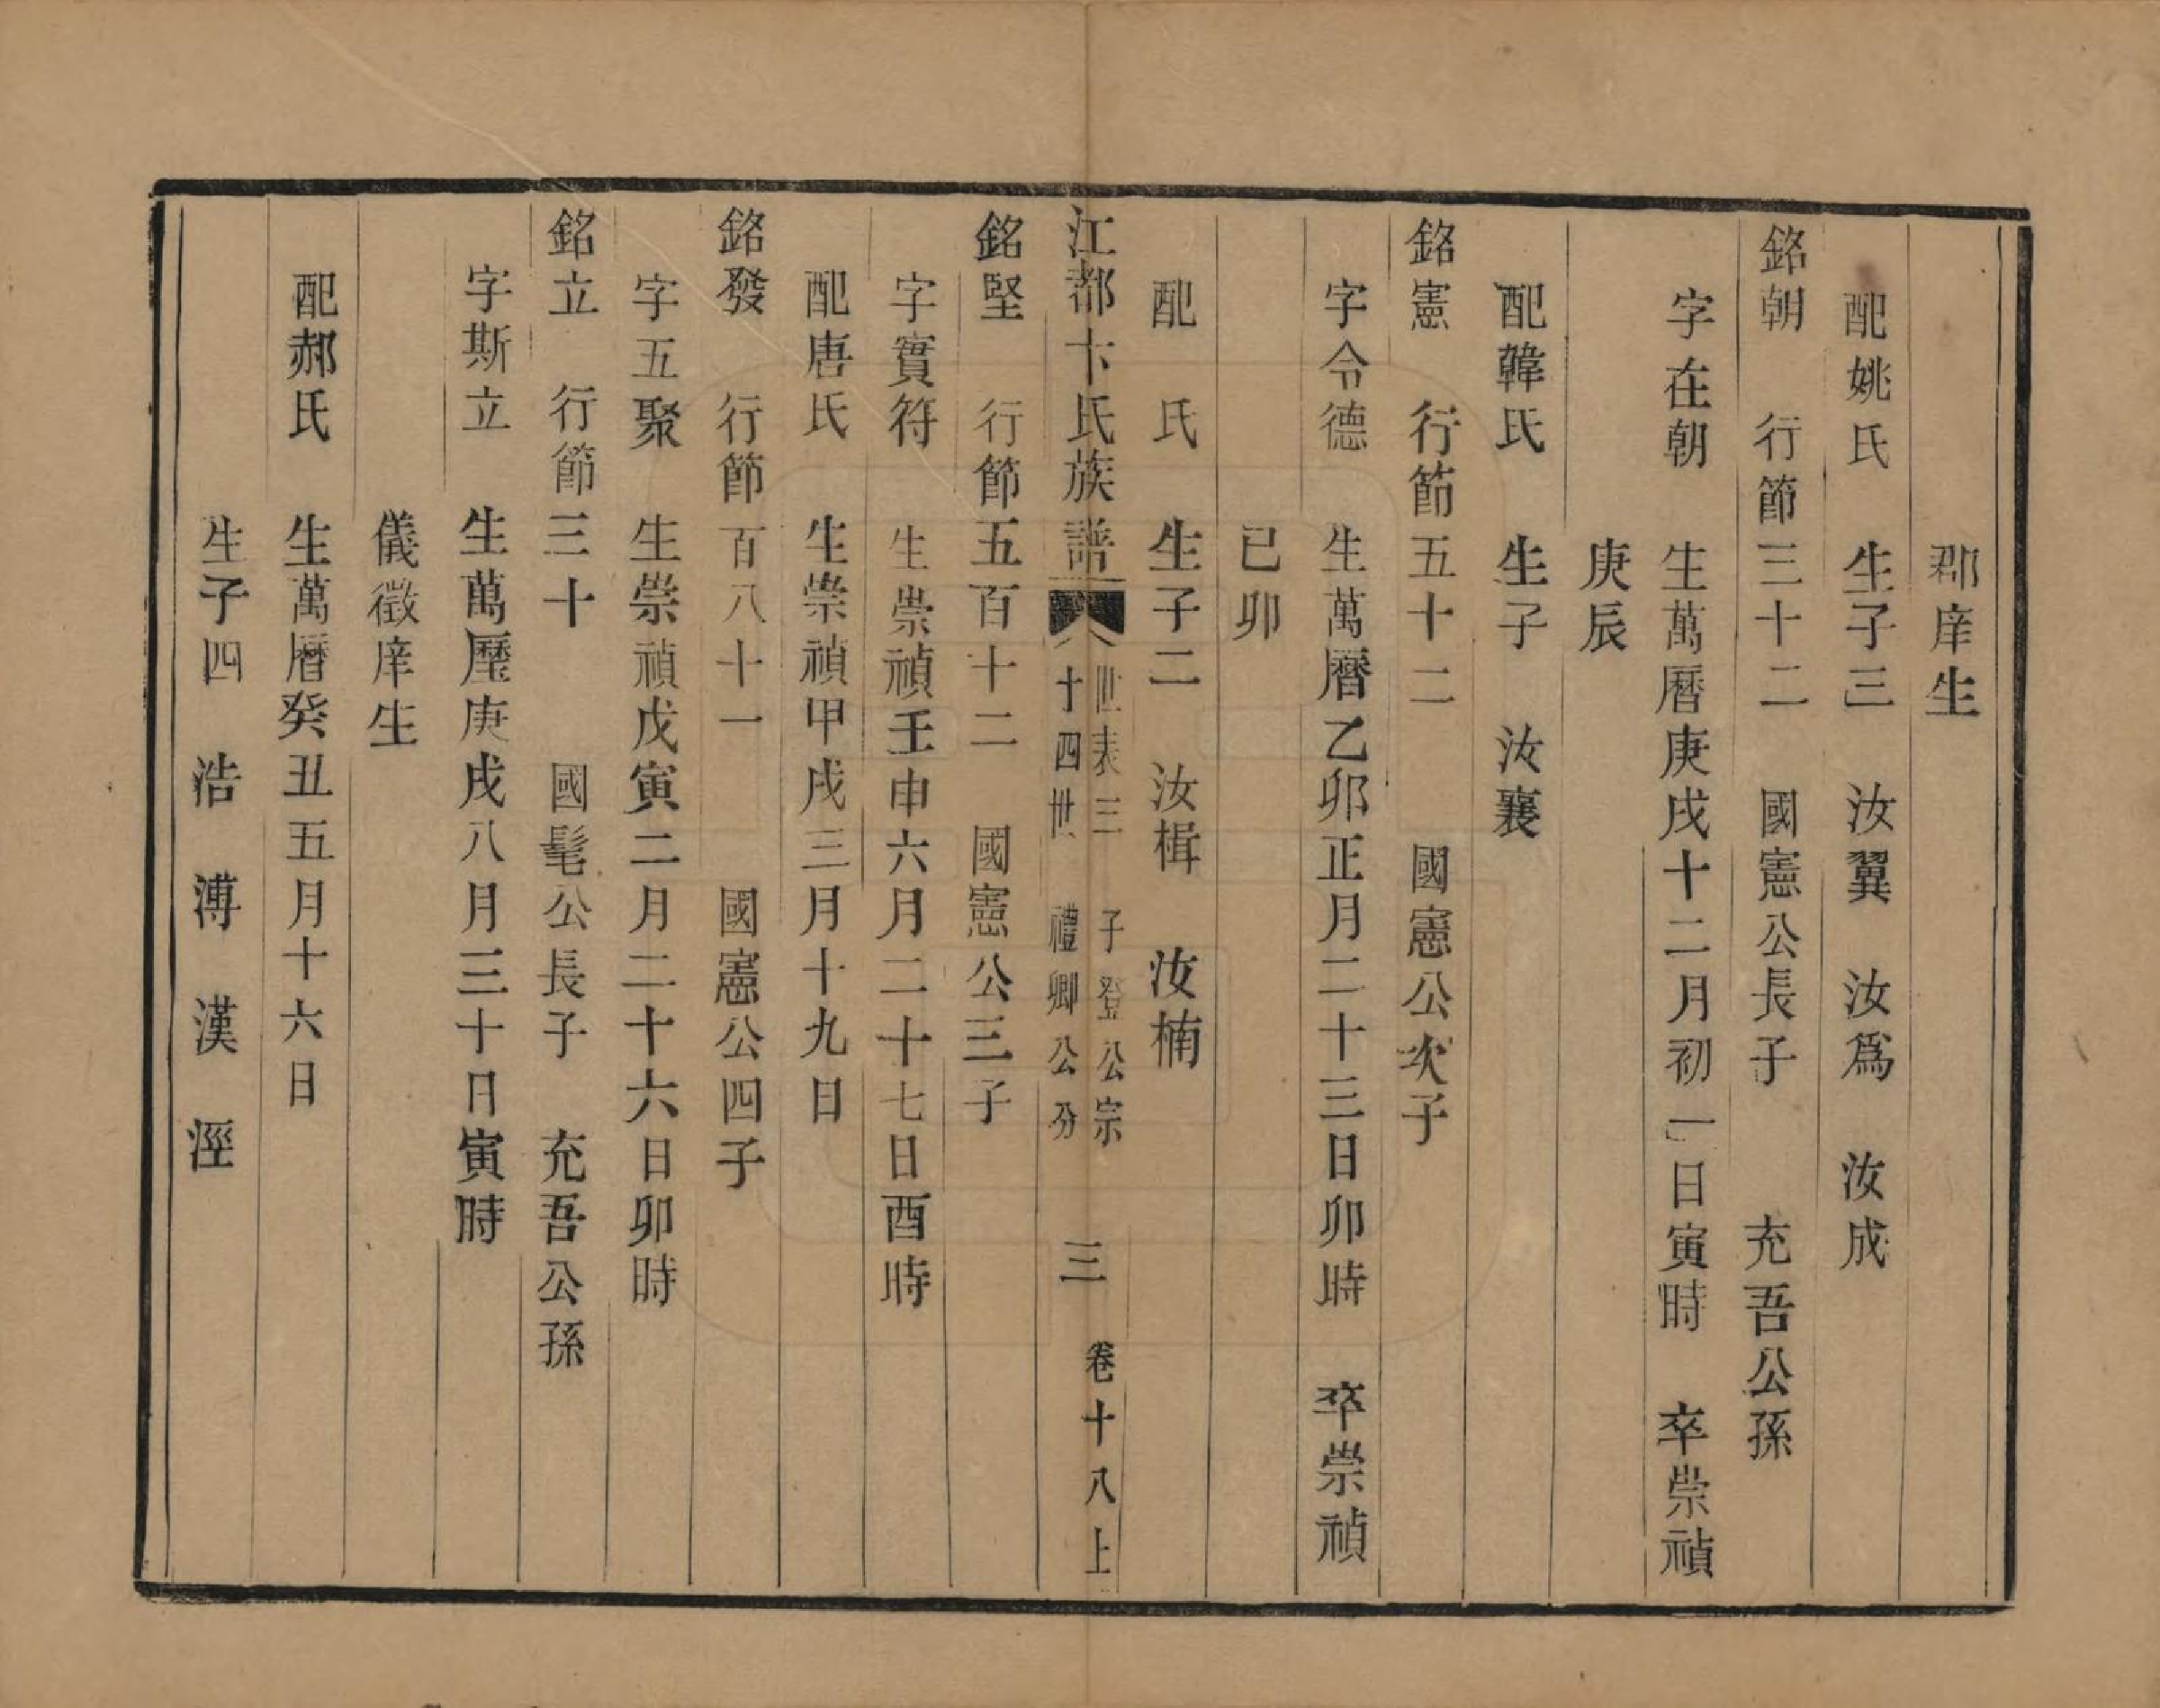 郡庠生
配姚氏　生子三　汝翼　汝爲　汝成
銘朝　行節三十二　國憲公長子　充吾公孫
字在朝　生萬曆庚戌十二月初一日寅時　卒崇禎
庚辰
配韓氏　生子　汝襄
銘憲　行節五十二　國憲公次子
字令德　生萬曆乙卯正月二十三日卯時　卒崇禎
已卯
配　氏　生子二　汝楫　汝楠
江都卞氏族譜　世表三　子登公宗　十四世　禮卿公分　三　卷十八上
銘堅　行節五百十二　國憲公三子
字實符　生崇禎壬申六月二十七日酉時
配唐氏　生崇禎甲戌三月十九日
銘發　行節百八十一　國憲公四子
字五聚　生崇禎戊寅二月二十六日卯時
銘立　行節三十　國髦公長子　充吾公孫
字斯立　生萬歷庚戌八月三十日寅時
儀徵庠生
配郝氏　生萬曆癸丑五月十六日
生子四　浩　溥　漢　涇